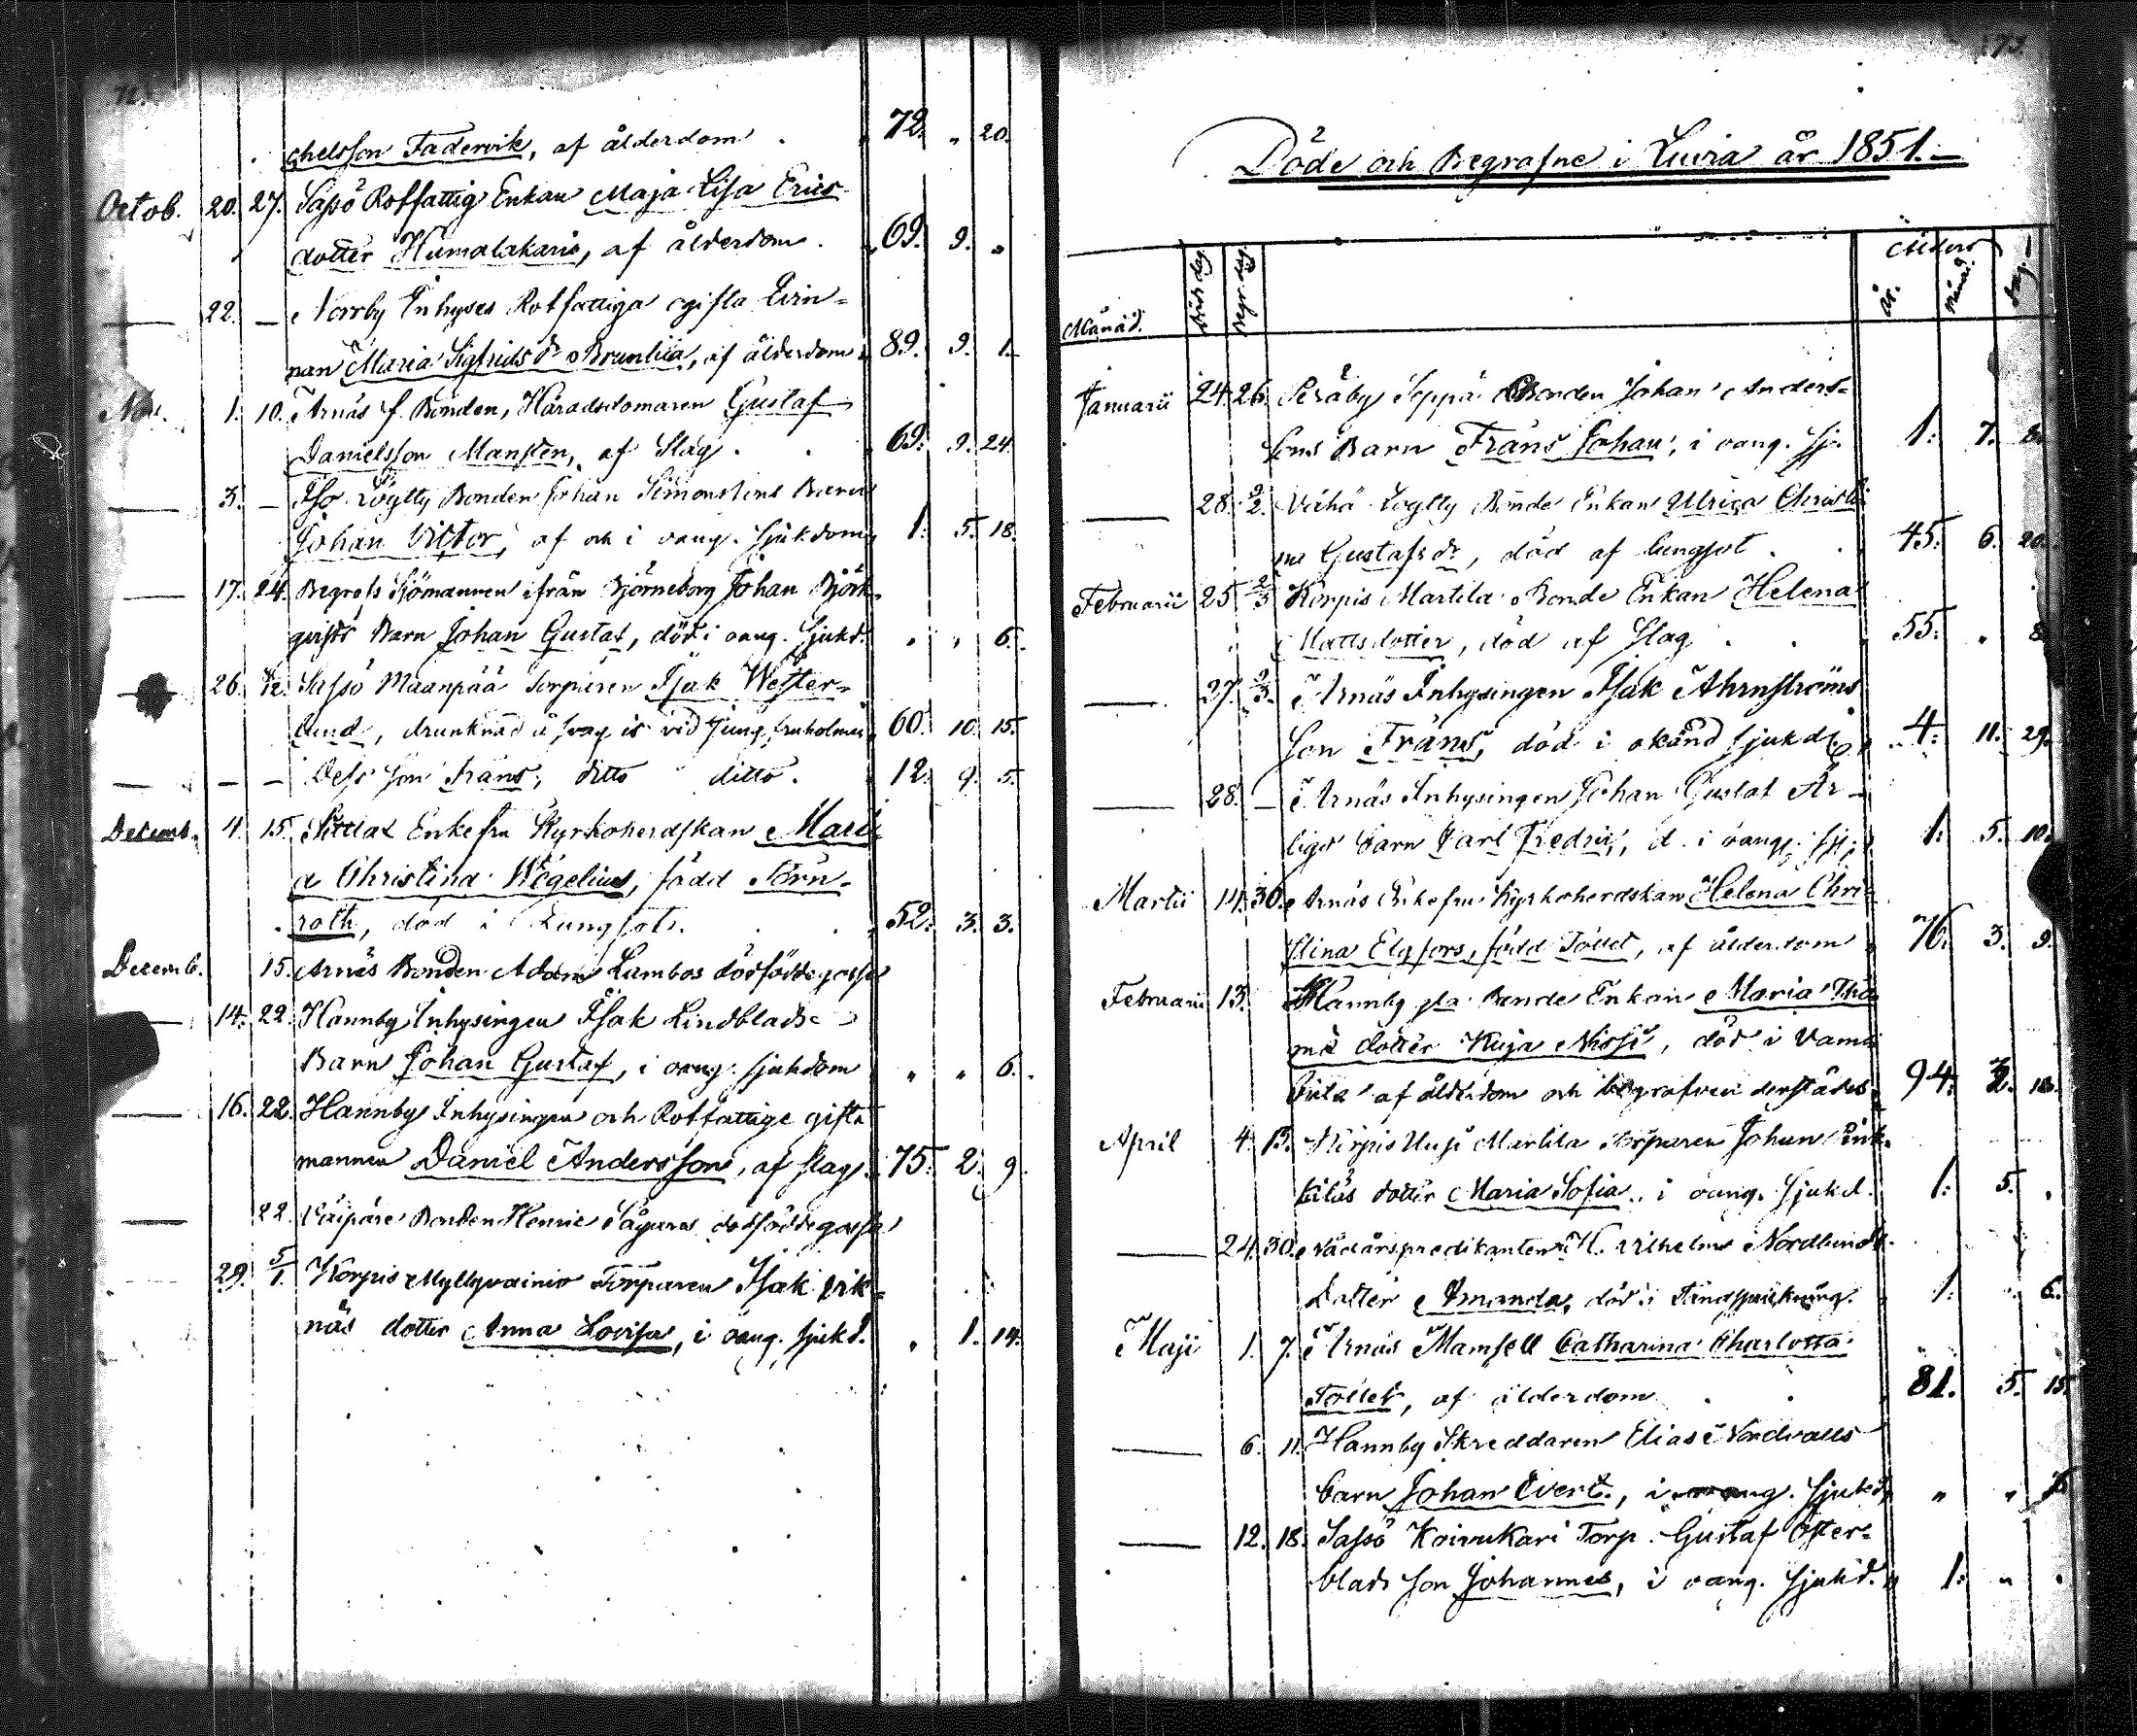 72.
chelsson Fadervik, af ålderdom . 72. " 20.
Octob. 20. 27. Sassö Rotfattig Enkan Maja Lisa Erics-
dotter Humalakari, af ålderdom. 69. 9. "
— 22. — Norrby Inhyses Rotfattiga ogifta Qvin=
nan Maria Sigfridsdr Brunlila, af ålderdom 89. 9. 1.
Nov. 1. 10. Arnäs f. Bonden, Häradsdomaren Gustaf
Danielsson Mansten, af Slag . . 69. 9. 24.
— 3. — Iso Löylty Bonden Johan Simonssons Barn
Johan Victor, af och i oang. sjukdom 1. 5. 18.
— 17. 24. Begrofs Sjömannen ifrån Björneborg Johan Björk-
qvists Barn Johan Gustaf, död i oang. sjukd. " " 6.
— 26. Sassö Maanpää Torparen Isak Wester-
lund, drunknad å svag is vid Jungfruholmen 60. 10. 15.
— — — Dess son Frans, ditto ditto. 12. 9. 5.
Decemb. 4. 15. Enkefru Kyrkoherdskan Mari
a Christina Wegelius, född Törn-
roth, död i Lungsot. . . 52. 3. 3.
Decemb. 15. Arnäs Bonden Adam Lambos dödfödde gosse
— 14. 22. Hannby Inhysingen Isak Lindblads
Barn Johan Gustaf, i oang. sjukdom " " 6.
— 16. 22. Hannby Inhysingen och Rotfattige gifta
mannen Daniel Andersson, af slag. 75. 2. 9.
— 22. Väipäre Bonden Henric Sågares dödfödde gosse
29. 5/1. Korpis Myllyvainio Torparen Isak Vik=
näs dotter Anna Lovisa, i oang. sjukd. " 1. 14.
73.
Döde och Begrafne i Luvia år 1851.
Månad. Död. dag Begr. dag Ålder
År. Månad. Dag.
Januarii 24. 26. Peräby Seppä Bonden Johan Anders-
sons Barn Frans Johan, i oang. sj. 1. 7. 8.
— 28. 9/2. Vähä Löylty Bonde Enkan Ulrica Christi
na Gustafsdr, död af lungsot . . 45. 6. 20.
Februarii 25 2/3 Korpis Martila Bonde Enkan Helena
Mattsdotter, död af slag . . 55. " 8.
— 27. 2/3. Arnäs Inhysingen Isak Ahrnströms
son Frans, död i okänd sjukd. 4. 11. 29.
— 28. — Arnäs Inhysingen Johan Gustaf Är-
ligs barn Carl Fredric, d. i oang. sj. 1. 5. 10.
Martii 14. 30. Arnäs Enkefru Kyrkoherdskan Helena Chri-
stina Elgfors, född Tollet, af ålderdom 76. 3. 9.
Februarii 13. Hannby gla Bonde Enkan Maria Tho
mæ dotter Kuja Nissi, död i Vam
pula af ålderdom och begrafven derstädes 94. 2. 18.
April 4. 13. Korpis Uusi Martila Torparen Johan Erik-
kiläs dotter Maria Sofia, i oang. sjukd. 1. 5. "
— 24. 30. Nådårspredikanten K. Vilhelm Nordlunds
Dotter Amanda, död i Tandsprickning. 1. " 6.
Maji 1. 7. Arnäs Mamsell Catharina Charlotta
Tollet, af ålderdom . . 81. 5. 15.
— 6. 11. Hannby Skreddaren Elias Nordvalls
barn Johan Evert, i oang. sjukd. " "
— 12. 18. Sassö Koivukari Torp. Gustaf Öster-
blads son Johannes, i oang. sjukd. 1. " "